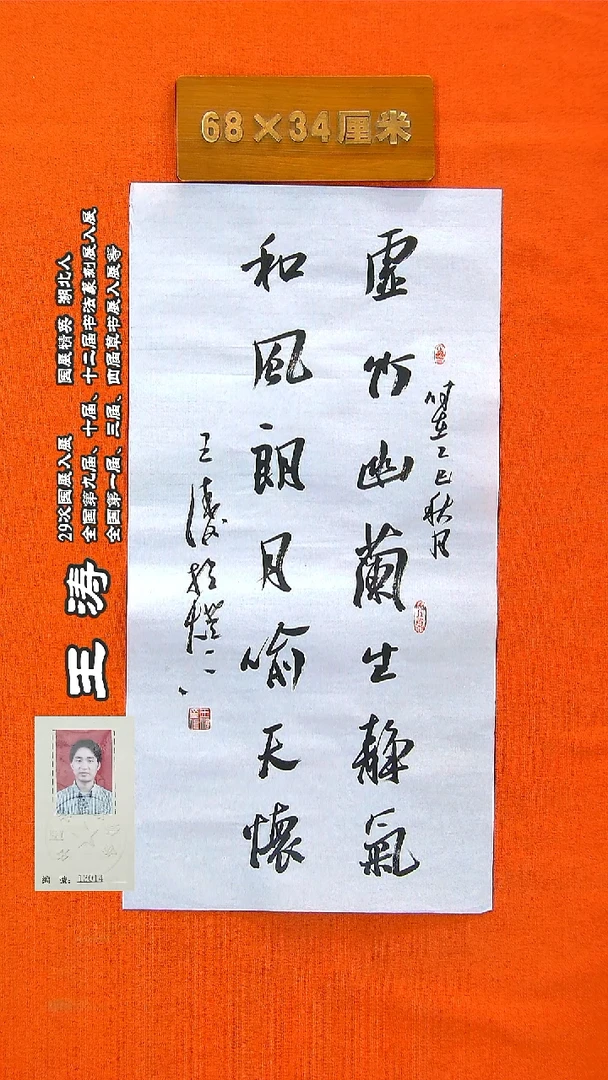 68×34厘米
虚竹幽蘭生静氣
和風朗月喻天懷
时在乙巳秋月
王涛
29次国展入展 国展精英 湖北人
全国第九届、十届、十二届书法篆刻展入展
全国第一届、三届、四届草书展入展等
王涛
编号：12014